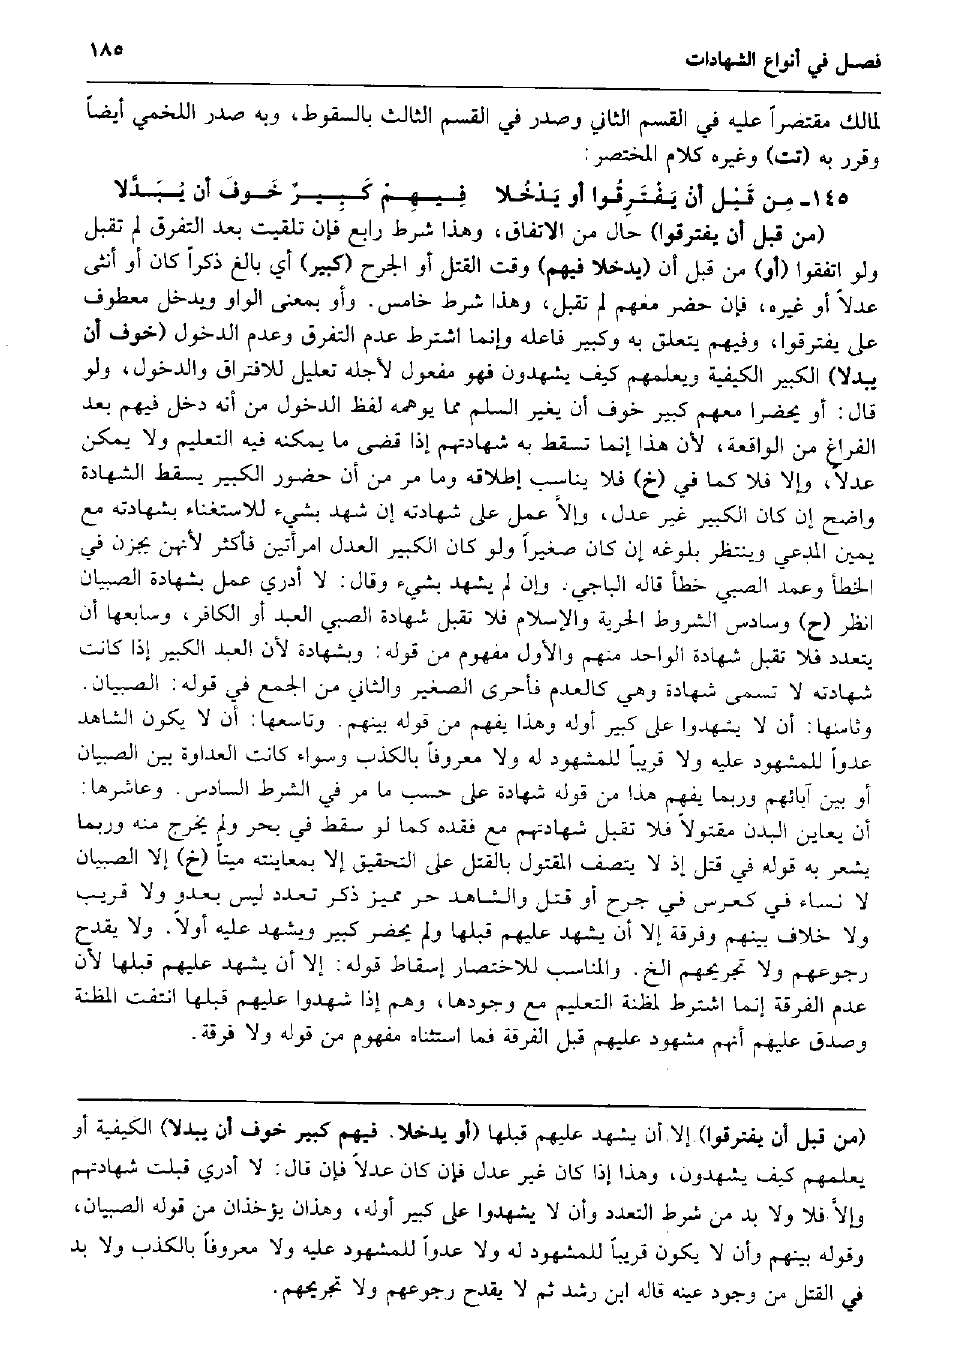 فصل في أنواع الشهادات
١٨٥
لمالك مقتصراً عليه في القسم الثاني وصدر في القسم الثالث بالسقوط، وبه صدر اللخمي أيضاً
وقرر به (تت) وغيره كلام المختصر:
١٤٥ـ مِن قَبْلِ أنْ يَفْتَرِقُوا أو يَدْخُلا فِيهِمْ كَبِيرٌ خَوفَ أن يُبَدَّلا
(من قبل أن يفترقوا) حال من الاتفاق، وهذا شرط رابع فإن تلقيت بعد التفرق لم تقبل
ولو اتفقوا (أو) من قبل أن (يدخلا فيهم) وقت القتل أو الجرح (كبير) أي بالغ ذكراً كان أو أنثى
عدلاً أو غيره، فإن حضر معهم لم تقبل، وهذا شرط خامس. وأو بمعنى الواو ويدخل معطوف
على يفترقوا، وفيهم يتعلق به وكبير فاعله وإنما اشترط عدم التفرق وعدم الدخول (خوف أن
يبدلا) الكبير الكيفية ويعلمهم كيف يشهدون فهو مفعول لأجله تعليل للافتراق والدخول، ولو
قال: أو يحضرا معهم كبير خوف أن يغير السلم مما يوهمه لفظ الدخول من أنه دخل فيهم بعد
الفراغ من الواقعة، لأن هذا إنما تسقط به شهادتهم إذا قضى ما يمكنه فيه التعليم ولا يمكن
عدلاً، وإلا فلا كما في (خ) فلا يناسب إطلاقه وما مر من أن حضور الكبير يسقط الشهادة
واضح إن كان الكبير غير عدل، وإلاّ عمل على شهادته إن شهد بشيء للاستغناء بشهادته مع
يمين المدعي وينتظر بلوغه إن كان صغيراً ولو كان الكبير العدل امرأتين فأكثر لأنهن يجزن في
الخطأ وعمد الصبي خطأ قاله الباجي. وإن لم يشهد بشيء وقال: لا أدري عمل بشهادة الصبيان
انظر (ح) وسادس الشروط الحرية والإسلام فلا تقبل شهادة الصبي العبد أو الكافر، وسابعها أن
يتعدد فلا تقبل شهادة الواحد منهم والأول مفهوم من قوله: وبشهادة لأن العبد الكبير إذا كانت
شهادته لا تسمى شهادة وهي كالعدم فأحرى الصغير والثاني من الجمع في قوله: الصبيان.
وثامنها: أن لا يشهدوا على كبير أوله وهذا يفهم من قوله بينهم. وتاسعها: أن لا يكون الشاهد
عدواً للمشهود عليه ولا قريباً للمشهود له ولا معروفاً بالكذب وسواء كانت العداوة بين الصبيان
أو بين آبائهم وربما يفهم هذا من قوله شهادة على حسب ما مر في الشرط السادس. وعاشرها:
أن يعاين البدن مقتولاً فلا تقبل شهادتهم مع فقده كما لو سقط في بحر ولم يخرج منه وربما
يشعر به قوله في قتل إذ لا يتصف المقتول بالقتل على التحقيق إلا بمعاينته ميتاً (خ) إلا الصبيان
لا نساء في كعرس في جرح أو قتل والشاهد حر مميز ذكر تعدد ليس بعدو ولا قريب
ولا خلاف بينهم وفرقة إلا أن يشهد عليهم قبلها ولم يحضر كبير ويشهد عليه أولاً. ولا يقدح
رجوعهم ولا تجريحهم الخ. والمناسب للاختصار إسقاط قوله: إلا أن يشهد عليهم قبلها لأن
عدم الفرقة إنما اشترط لمظنة التعليم مع وجودها، وهم إذا شهدوا عليهم قبلها انتفت المظنة
وصدق عليهم أنهم مشهود عليهم قبل الفرقة فما استثناه مفهوم من قوله ولا فرقة.
(من قبل أن يفترقوا) إلا أن يشهد عليهم قبلها (أو يدخلا. فيهم كبير خوف أن يبدلا) الكيفية أو
يعلمهم كيف يشهدون، وهذا إذا كان غير عدل فإن كان عدلاً فإن قال: لا أدري قبلت شهادتهم
وإلاّ فلا ولا بد من شرط التعدد وأن لا يشهدوا على كبير أوله، وهذان يؤخذان من قوله الصبيان،
وقوله بينهم وأن لا يكون قريباً للمشهود له ولا عدواً للمشهود عليه ولا معروفاً بالكذب ولا بد
في القتل من وجود عينه قاله ابن رشد ثم لا يقدح رجوعهم ولا تجريحهم.